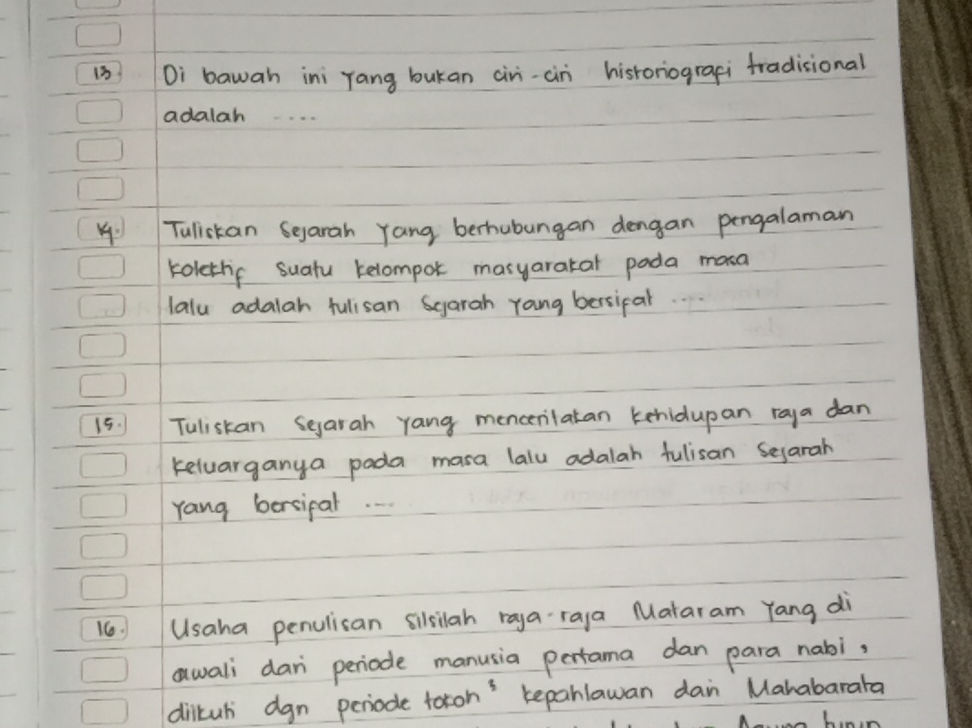 13. Di bawah ini yang bukan ciri-ciri historiografi tradisional
adalah ....
14. Tuliskan Sejarah yang berhubungan dengan pengalaman
kolektif suatu kelompok masyarakat pada masa
lalu adalah tulisan Sejarah yang bersifat ....
15. Tuliskan Sejarah yang menceritakan kehidupan raja dan
keluarganya pada masa lalu adalah tulisan Sejarah
yang bersifat ....
16. Usaha penulisan silsilah raja-raja Mataram yang di
awali dari periode manusia pertama dan para nabi,
diikuti dgn periode tokoh³ kepahlawan dari Mahabarata